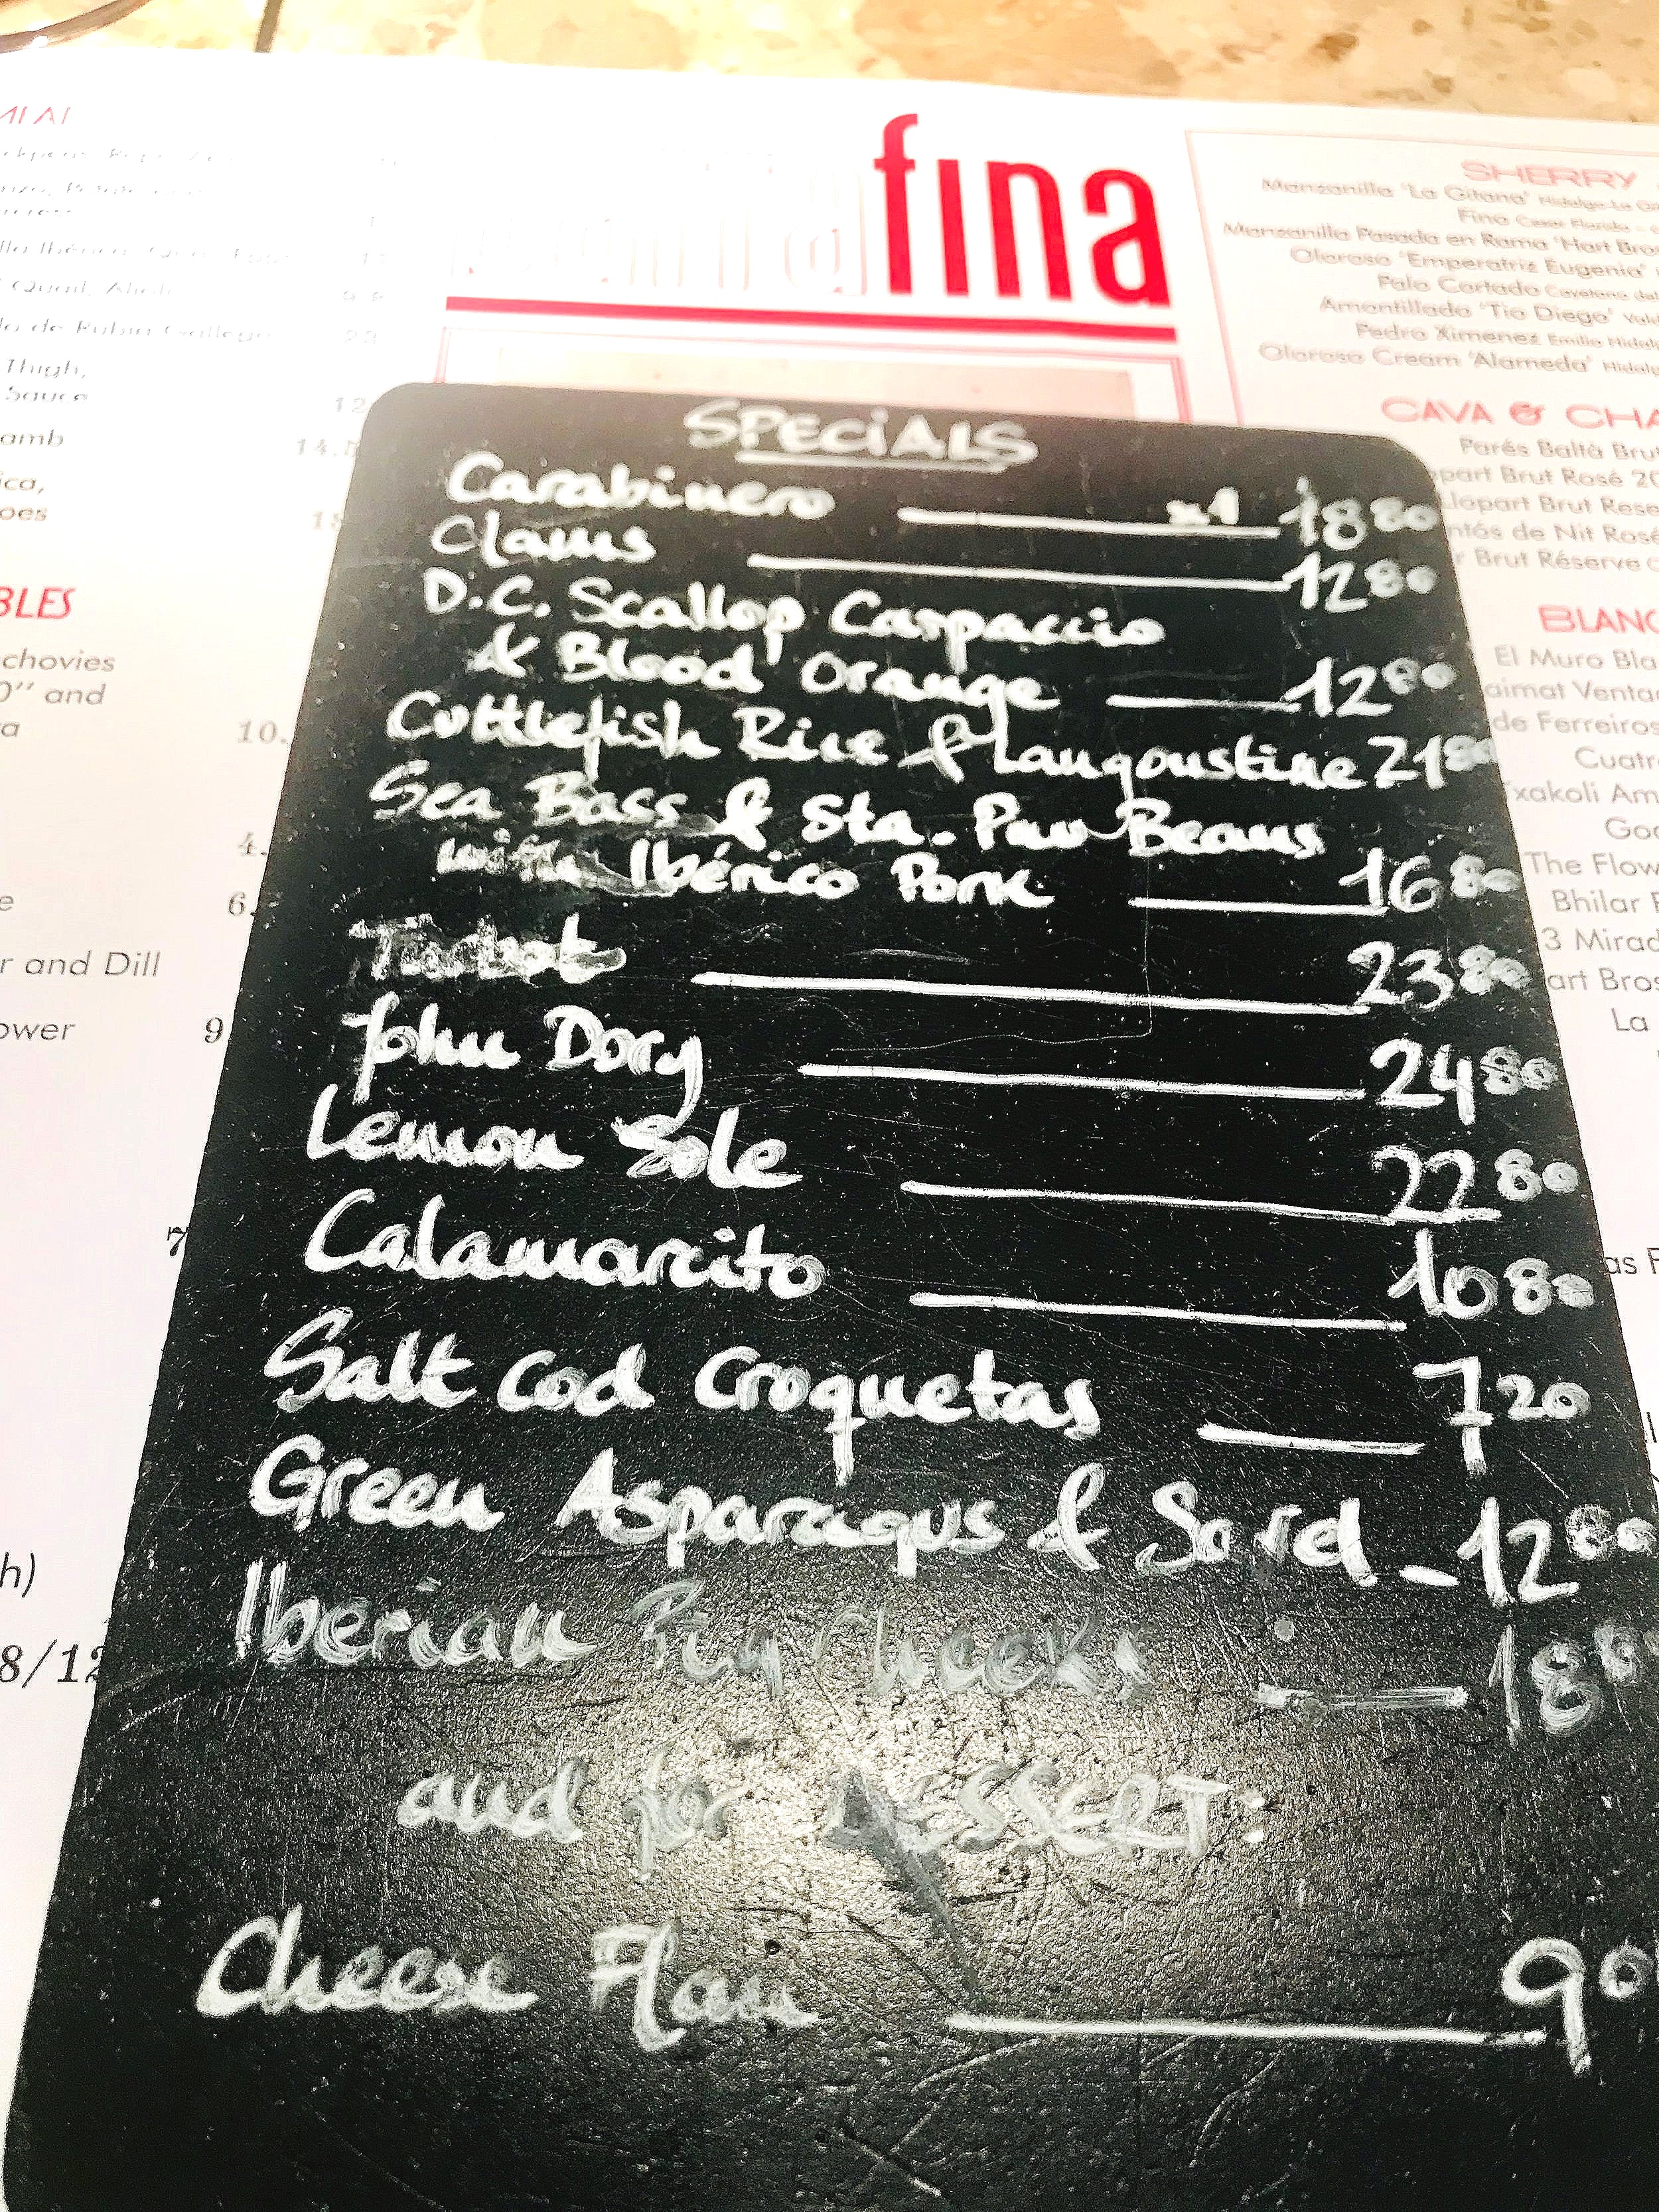 fina
SHERRY
Manzanilla 'La Gitana'
Fino
Manzanilla Pasada en Rama 'Hart Bro
Oloroso 'Emperatriz Eugenia'
Palo Cortado
Amontillado 'Tio Diego'
Pedro Ximenez
Oloroso Cream 'Alameda'
CAVA & CHA
Parés Baltà Brut
part Brut Rosé 20
lopart Brut Rese
ntós de Nit Rosé
Brut Réserve
BLANC
El Muro Bla
aimat Venta
de Ferreiros
Cuatr
Txakoli Am
Go
The Flow
Bhilar
3 Mirad
art Bros
La
as F
Thigh,
Sauce
12
amb 14.
ica,
oes
BLES
chovies
0" and
a 10.
4.
e 6.
r and Dill
ower 9
7
h)
8/12
SPECiALS
Carabinero x1 18 80
Clams 12 80
D.C. Scallop Carpaccio
& Blood Orange 12 80
Cuttlefish Rice & Langoustine 21 80
Sea Bass & Sta. Pau Beans
with Ibérico Pork 16 80
Turbot 23 80
John Dory 24 80
Lemon Sole 22 80
Calamarcito 10 80
Salt Cod Croquetas 7 20
Green Asparagus & Sord - 12 00
Iberian Pig Cheeks 18 8
and for DESSERT:
Cheese Flan 9 0